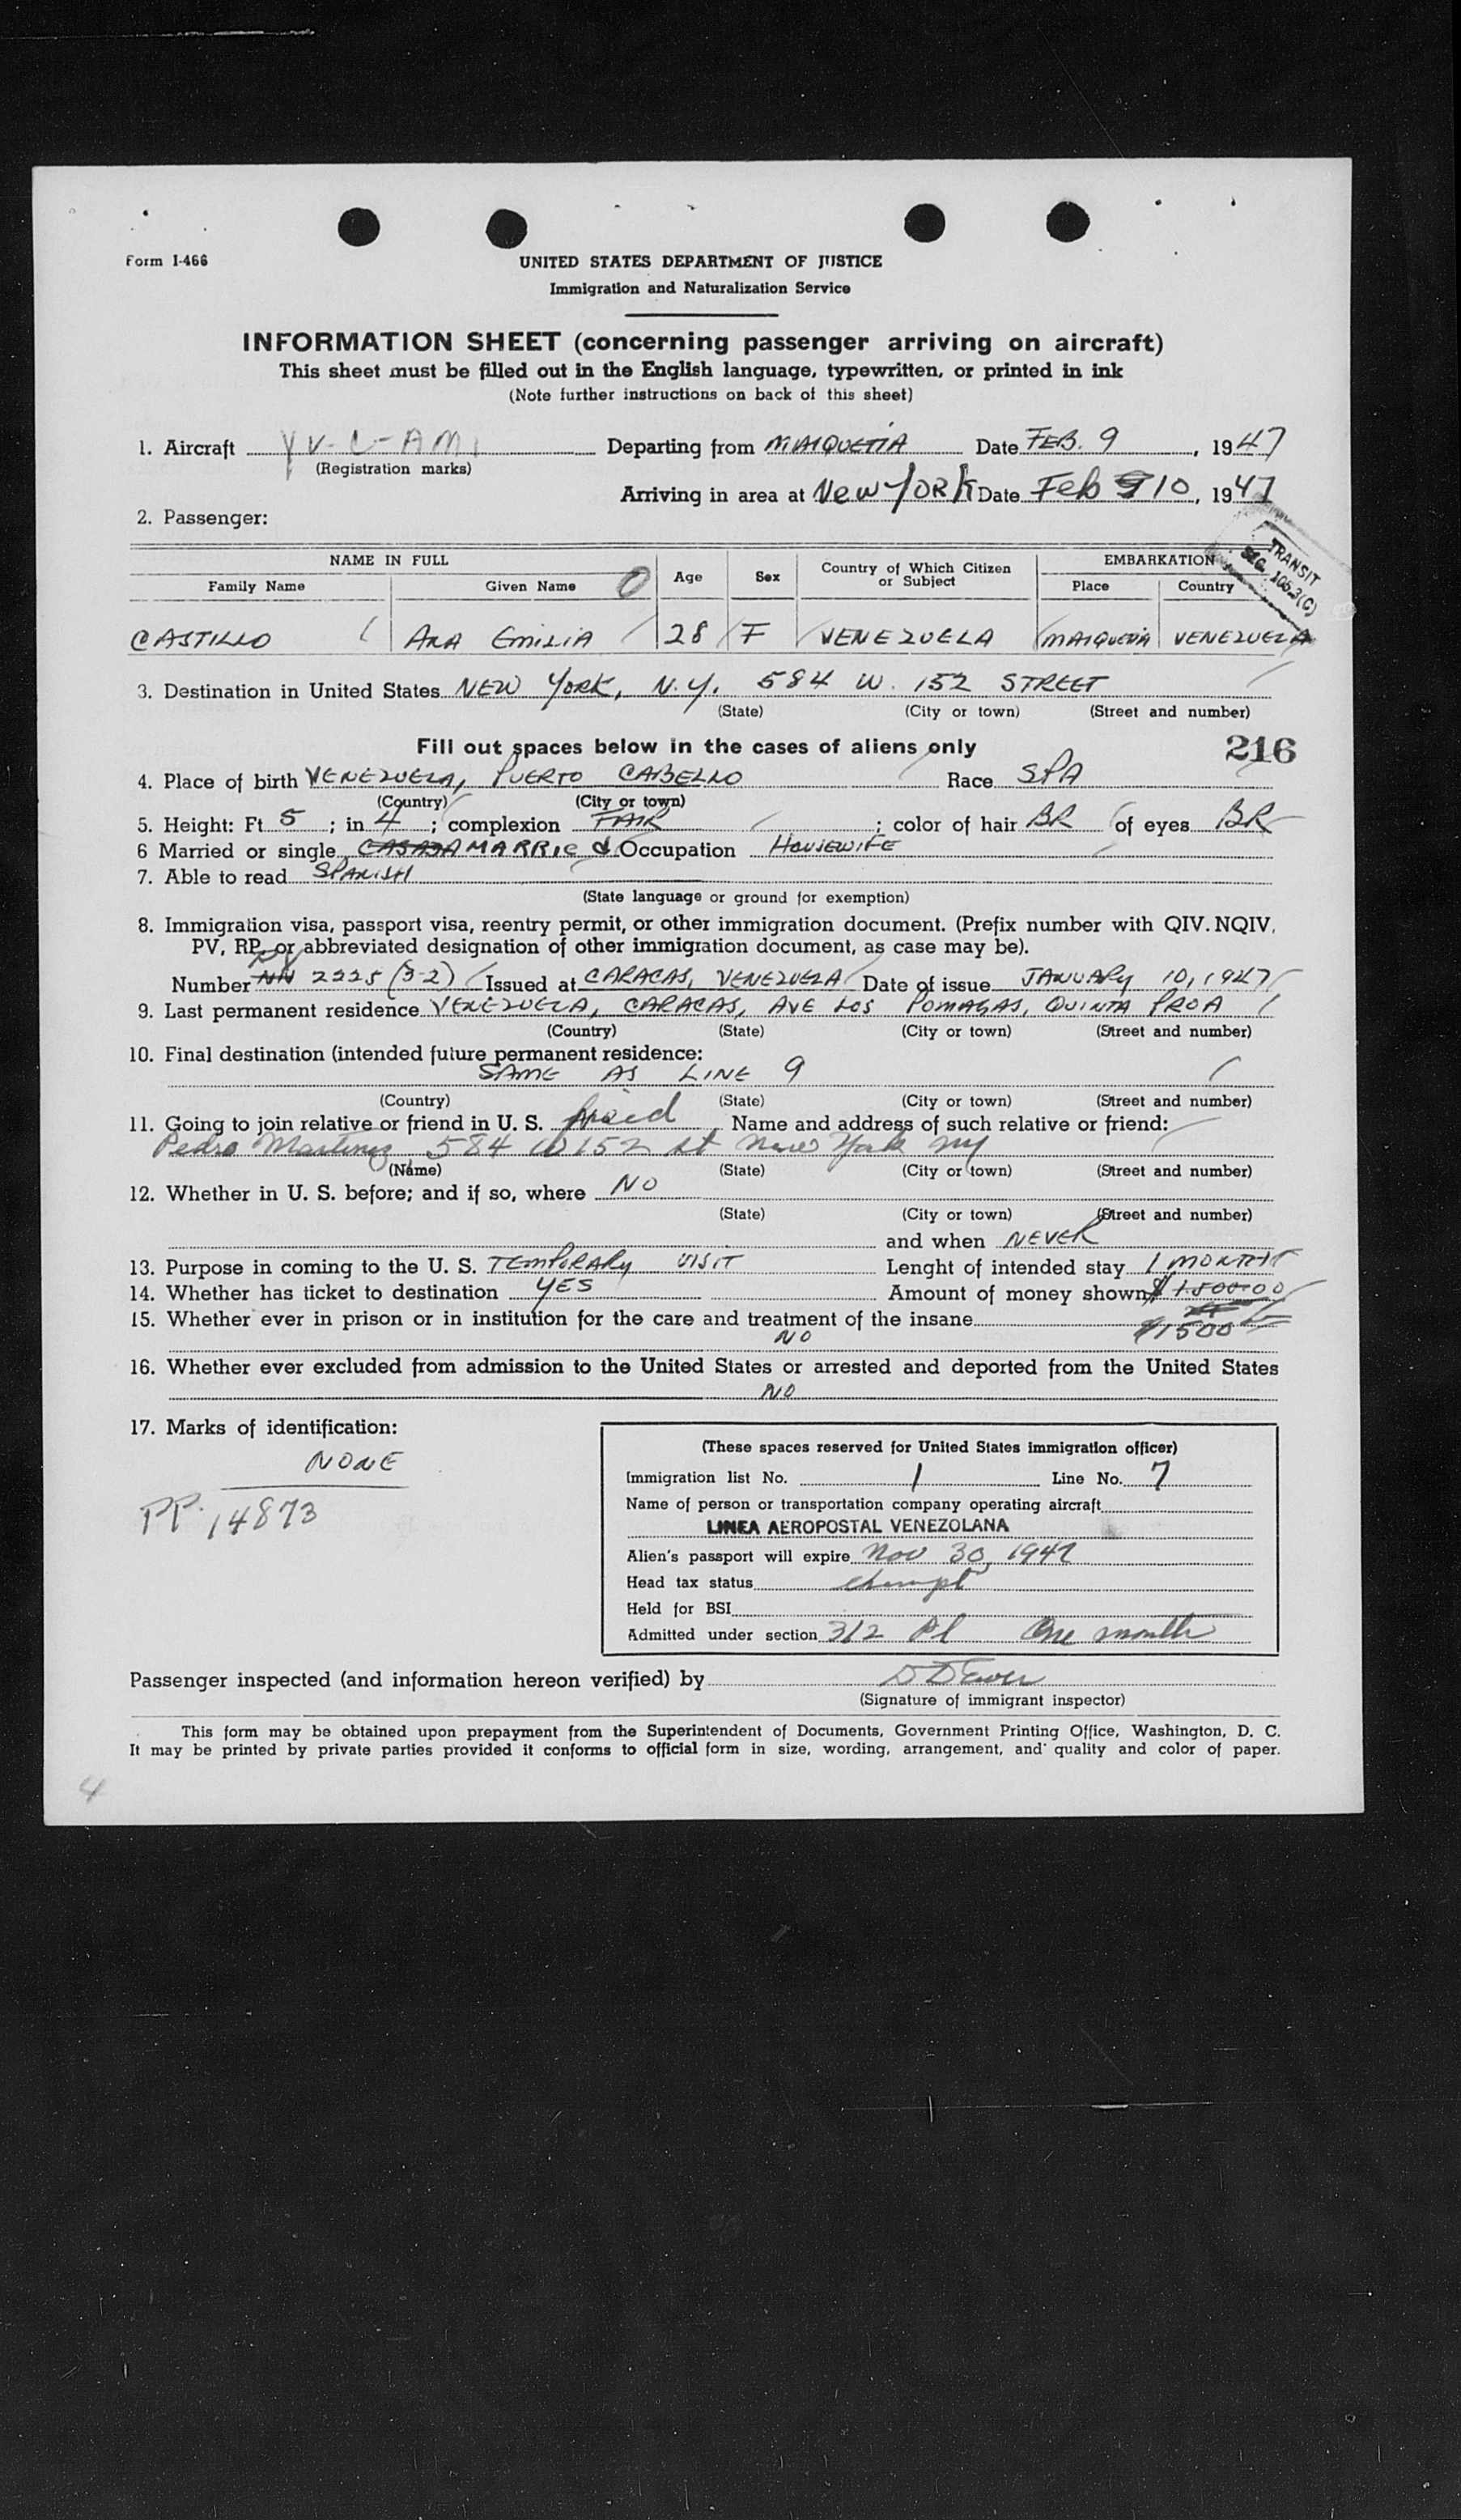 Form I-466
UNITED STATES DEPARTMENT OF JUSTICE
Immigration and Naturalization Service
INFORMATION SHEET (concerning passenger arriving on aircraft)
This sheet must be filled out in the English language, typewritten, or printed in ink
(Note further instructions on back of this sheet)
1. Aircraft YV-C-AMI Departing from MAIQUETIA Date FEB. 9, 1947
(Registration marks)
Arriving in area at New YORK Date Feb 10, 1947
2. Passenger:
TRANSIT
SEC. 105.3(C)
NAME IN FULL Age Sex Country of Which Citizen or Subject EMBARKATION
Family Name Given Name Place Country
CASTILLO ANA EMILIA 28 F VENEZUELA MAIQUETIA VENEZUELA
3. Destination in United States NEW YORK, N.Y. 584 W. 152 STREET
(State) (City or town) (Street and number)
Fill out spaces below in the cases of aliens only 216
4. Place of birth VENEZUELA, PUERTO CABELLO Race SPA
(Country) (City or town)
5. Height: Ft 5; in 4; complexion FAIR; color of hair BR of eyes BR
6 Married or single CASADA MARRIED Occupation HOUSEWIFE
7. Able to read SPANISH
(State language or ground for exemption)
8. Immigration visa, passport visa, reentry permit, or other immigration document. (Prefix number with QIV. NQIV,
PV, RP, or abbreviated designation of other immigration document, as case may be).
Number 2225 (3-2) Issued at CARACAS, VENEZUELA Date of issue JANUARY 10, 1947
9. Last permanent residence VENEZUELA, CARACAS, AVE LOS POMAGAS, QUINTA PROA
(Country) (State) (City or town) (Street and number)
10. Final destination (intended future permanent residence:
SAME AS LINE 9
(Country) (State) (City or town) (Street and number)
11. Going to join relative or friend in U. S. friend, Name and address of such relative or friend:
Pedro Martinez 584 W 152 st New York NY
(Name) (State) (City or town) (Street and number)
12. Whether in U. S. before; and if so, where NO
(State) (City or town) (Street and number)
and when NEVER
13. Purpose in coming to the U. S. TEMPORARY VISIT Lenght of intended stay 1 MONTH
14. Whether has ticket to destination YES Amount of money shown $1500.00
15. Whether ever in prison or in institution for the care and treatment of the insane $1500
NO
16. Whether ever excluded from admission to the United States or arrested and deported from the United States
NO
17. Marks of identification:
NONE
PP. 14873
(These spaces reserved for United States immigration officer)
Immigration list No. 1 Line No. 7
Name of person or transportation company operating aircraft
LINEA AEROPOSTAL VENEZOLANA
Alien's passport will expire Nov 30, 1947
Head tax status exempt
Held for BSI
Admitted under section 3/2 Pl One month
Passenger inspected (and information hereon verified) by
(Signature of immigrant inspector)
This form may be obtained upon prepayment from the Superintendent of Documents, Government Printing Office, Washington, D. C.
It may be printed by private parties provided it conforms to official form in size, wording, arrangement, and quality and color of paper.
4